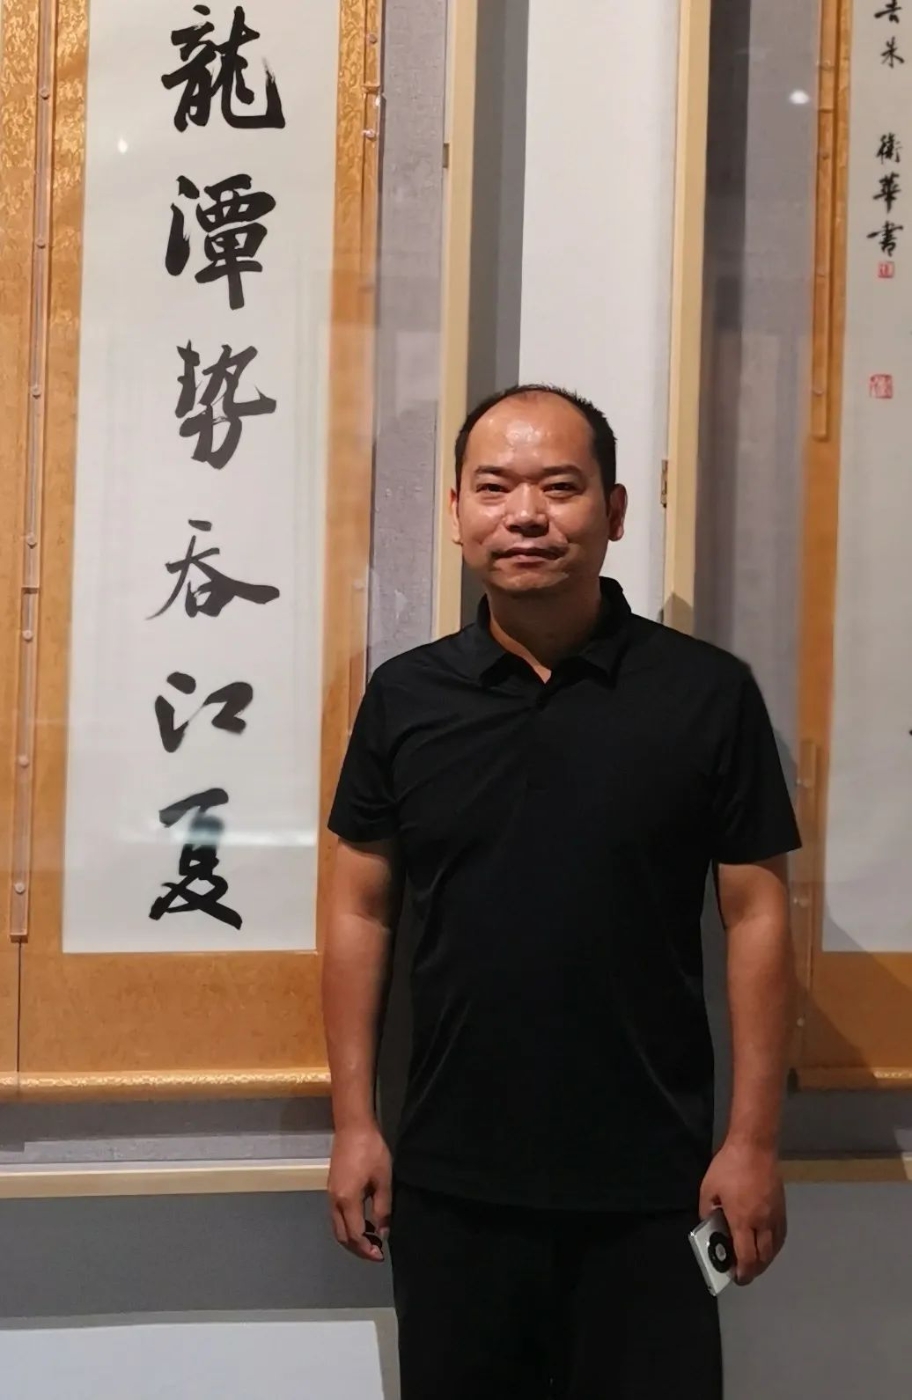 衛華書
龍潭勢吞江夏